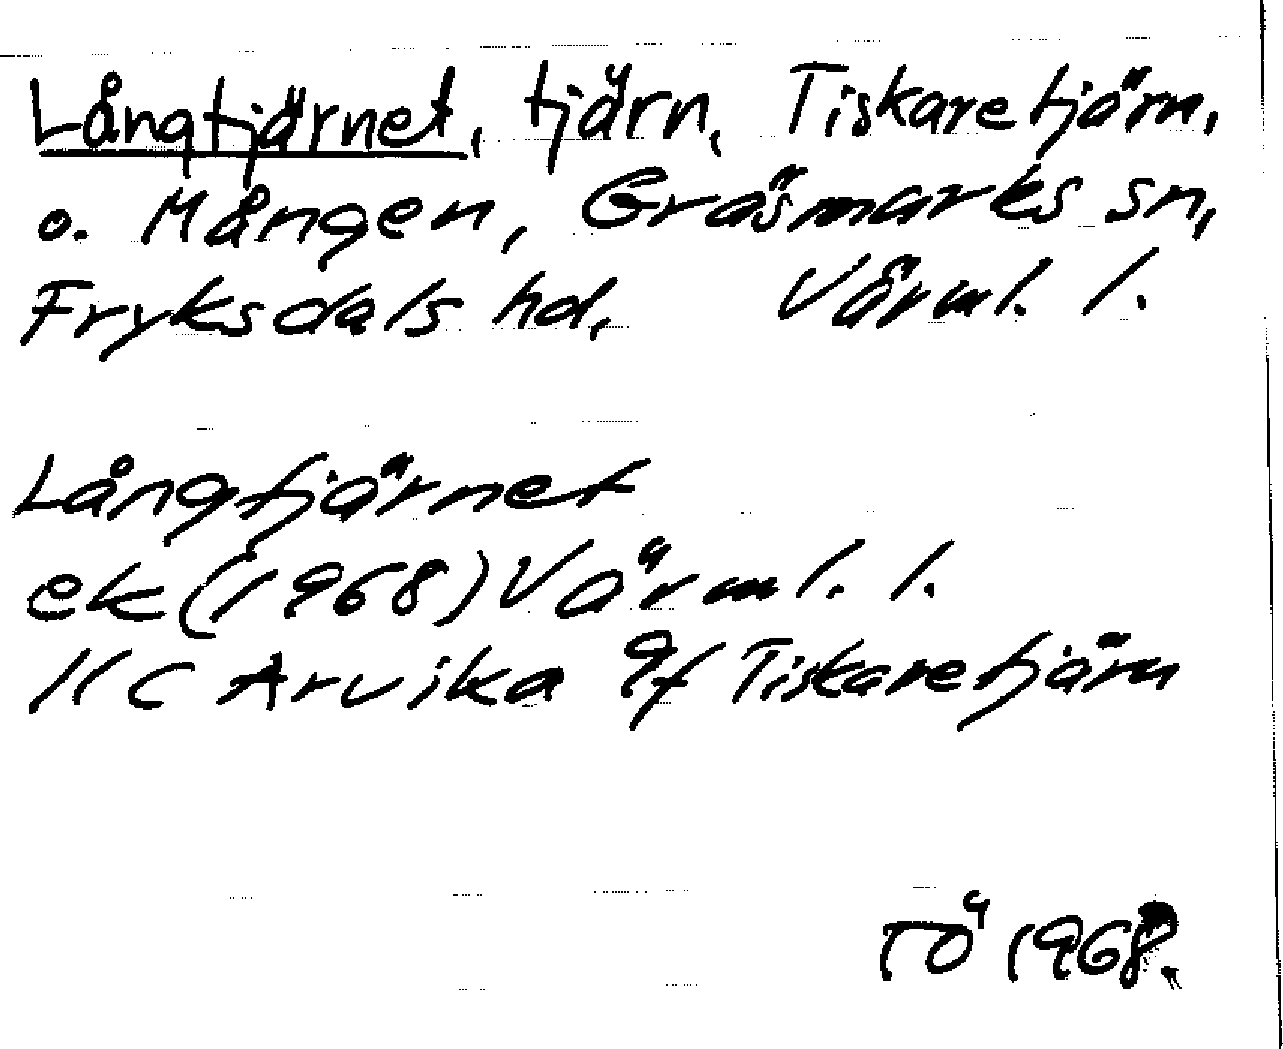 Långtjärnet, tjärn, Tiskaretjärn,
o. Mången, Gräsmarks sn,
Fryksdals hd, Värml. l.
Långtjärnet
ek (1968) Värml. l.
11 C Arvika 9f Tiskaretjärn
TÖ 1968.